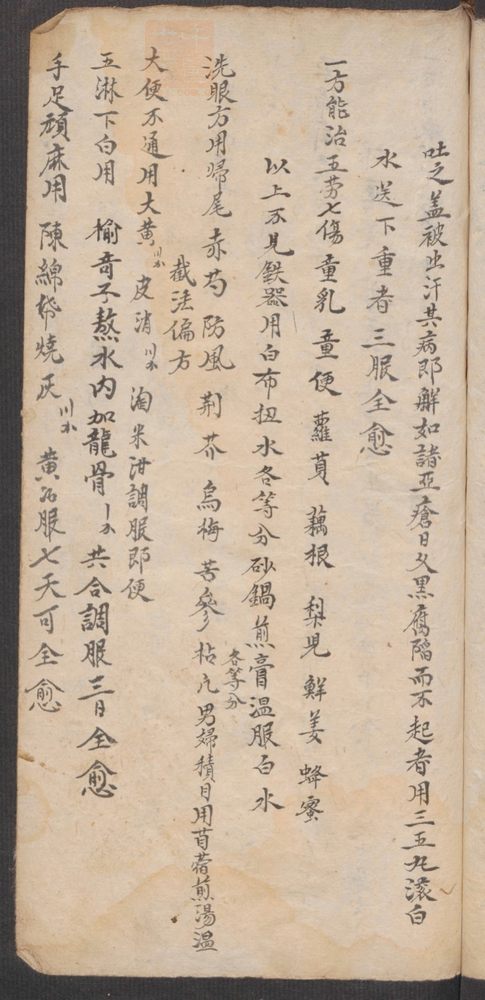 吐之盖被出汗其病即解如諸亞瘡日久黒腐陷而不起者用三五丸滚白
水送下重者三服全愈
一方能治五劳七傷 童乳 童便 蘿蔔 藕根 梨児 鮮姜 蜂蜜
以上不見鉄器用白布扭水各等分砂鍋煎膏温服白水
洗眼方用歸尾 赤芍 防風 荆芥 烏梅 苦參 枯凢 各等分 男婦積目用苜蓿煎湯温
截法偏方
大便不通用大黄 皮消 淘米泔調服即便
五淋下白用 榆 子熬水内加龍骨 共合調服三日全愈
手足頑麻用 陳綿 燒灰 黄 服七天可全愈